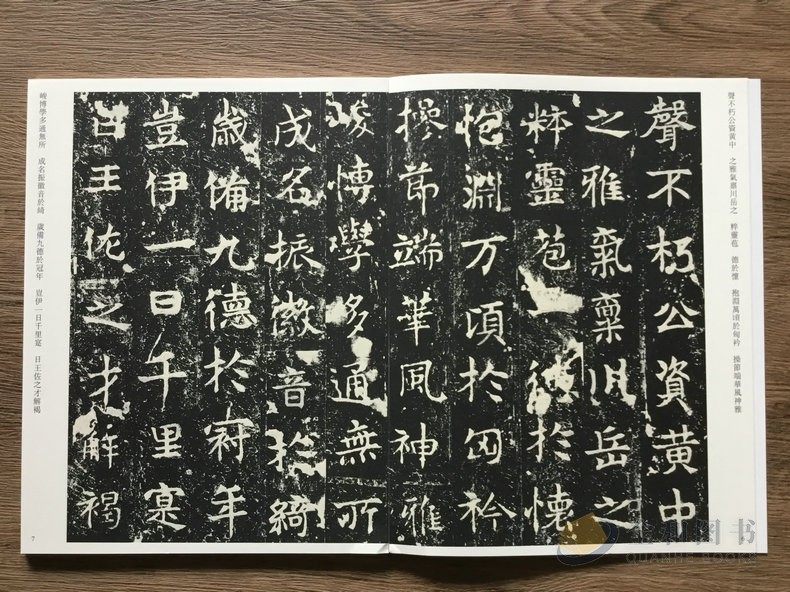 聲不朽公資黄中 之雅氣稟川岳之 粹靈苞 德於懷 抱淵萬頃於匈衿 操節端華風神雅
聲不朽公資黄中
之雅氣稟川岳之
粹靈苞一德於懷
抱淵万頃於匈衿
操節端華風神雅
峻博學多通無所
成名振徽音於綺
歲備九德於冠年
豈伊一日千里寔
曰王佐之才解褐
峻博學多通無所 成名振徽音於綺 歲備九德於冠年 豈伊一日千里寔 曰王佐之才解褐
7
图书
QUANHE BOOKS